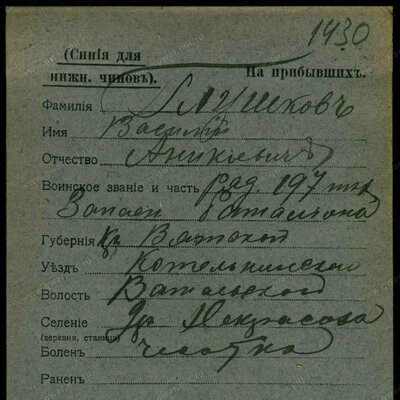 1430
(Синія для
нижн. чиновъ).
На прибывшихъ.
Фамилія Глушковъ
Имя Василій
Отчество Аникіевичъ
Воинское званіе и часть ряд. 197 пѣх
Запасн Баталіона
Губернія Кр Вятской
Уѣздъ Котельническаго
Волость
Селеніе др Некрасова
(деревня, станица)
Боленъ чесотка
Раненъ